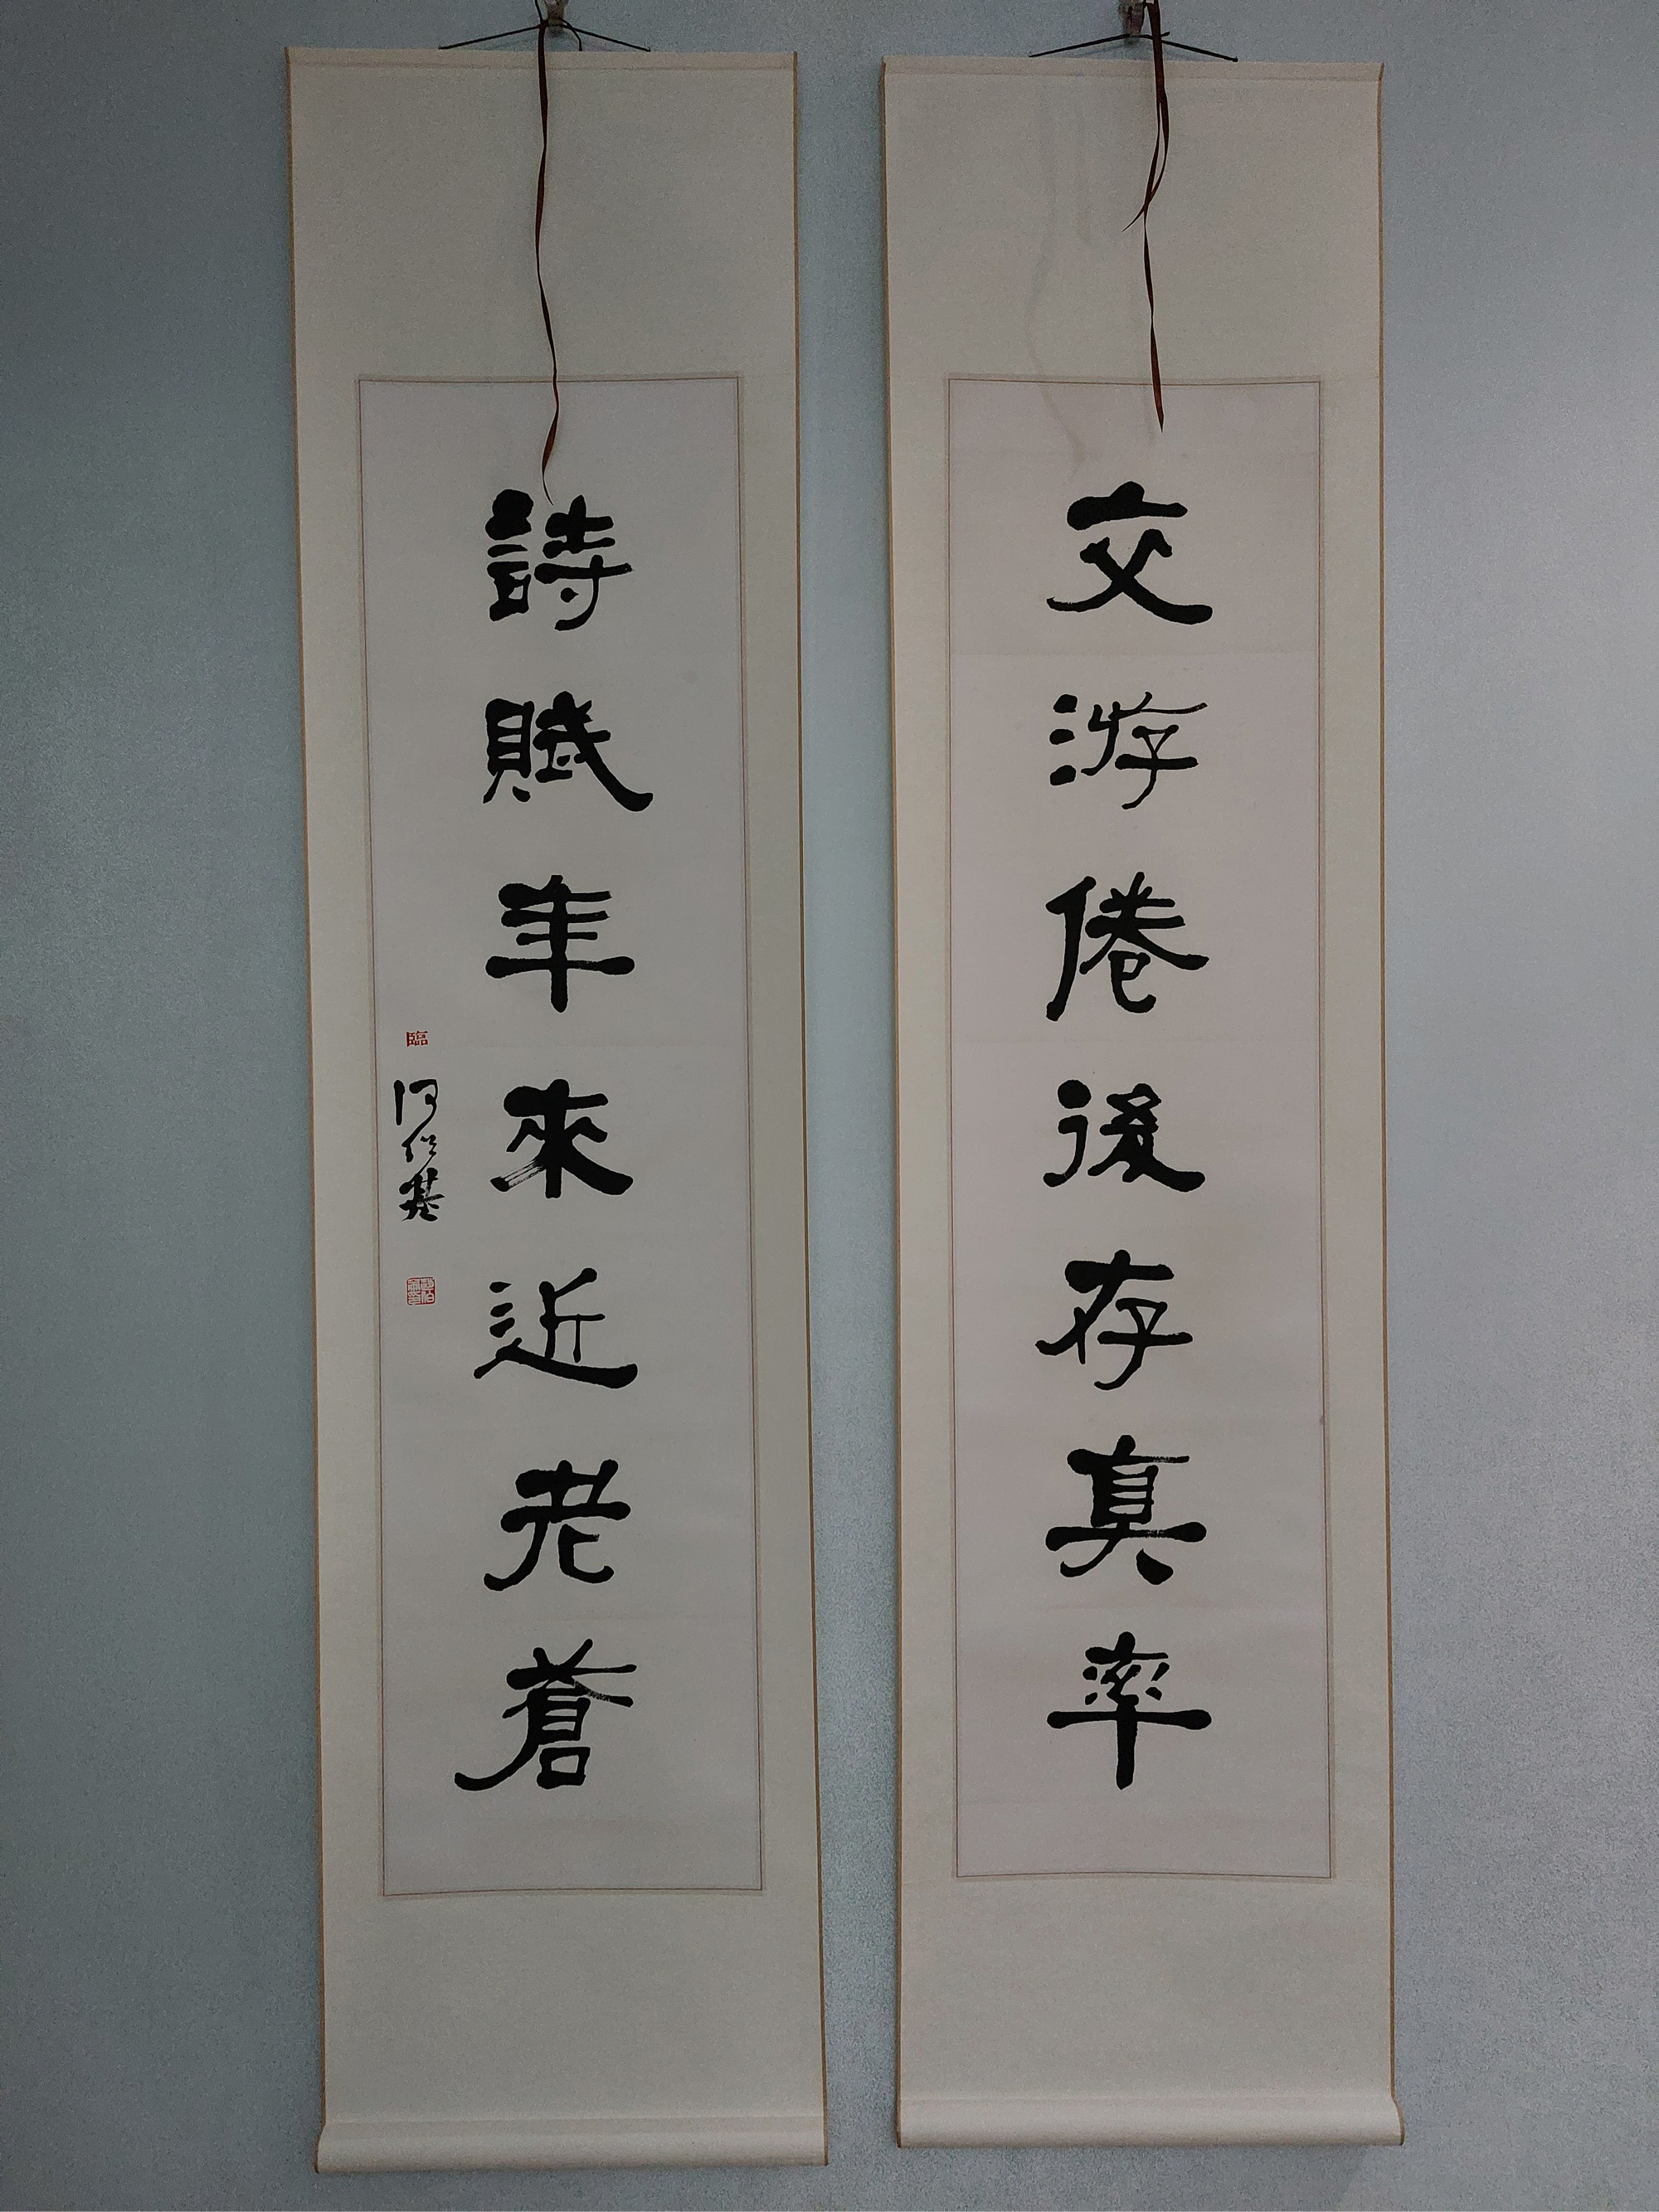 交游倦後存真率
詩賦年來近老蒼
臨
何紹基